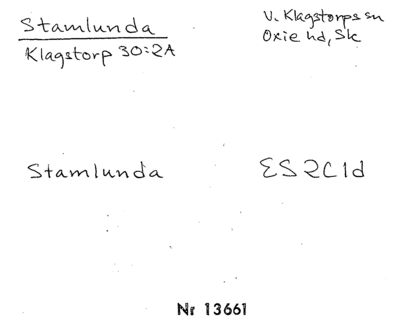 Stamlunda
Klagstorp 30:2A
V. Klagstorps sn
Oxie hd, Sk
Stamlunda
ES2C1d
Nr 13661